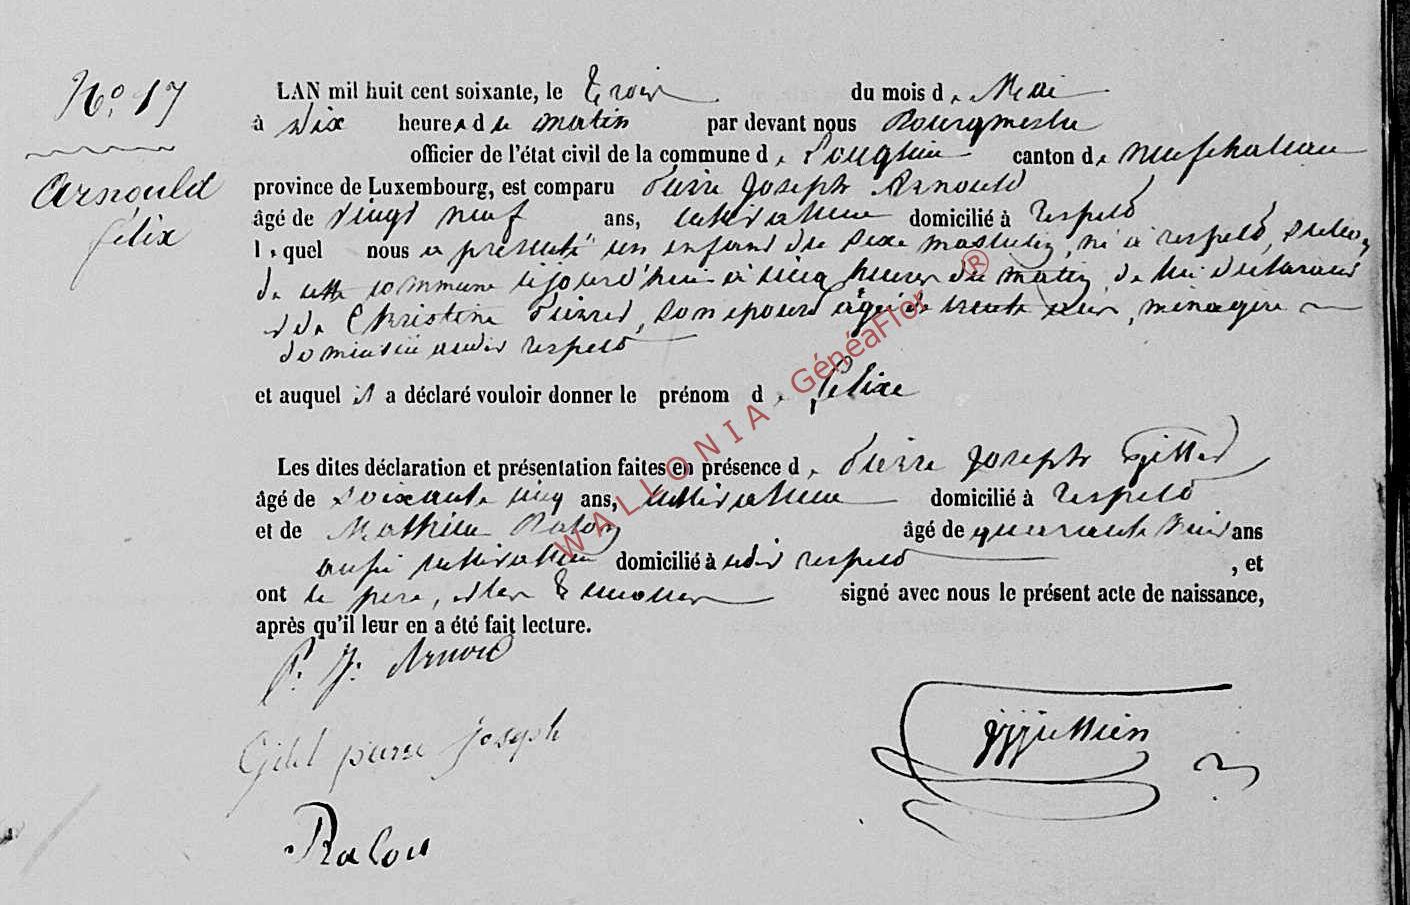 No. 17
Arnould
félix
LAN mil huit cent soixante, le Trois du mois de Mai
à dix heures du matin par devant nous Bourgmestre
officier de l'état civil de la commune de canton de neufchateau
province de Luxembourg, est comparu Pierre Joseph Arnould
âgé de vingt neuf ans, cultivateur domicilié à respelt
lequel nous a présenté un enfant du sexe masculin, né à respelt, section
de cette commune cejourd'hui à cinq heures du matin, de lui déclarant
et de Christine Pierret, son epouse agée de trente ans, ménagère
domiciliée audit respelt
et auquel il a déclaré vouloir donner le prénom de félixe
Les dites déclaration et présentation faites en présence de Pierre Joseph Gillet
âgé de soixante cinq ans, cultivateur domicilié à respelt
et de Mathieu Ralon âgé de quarante ans
aussi cultivateur domicilié à udit respelt , et
ont le père, et les temoins signé avec nous le présent acte de naissance,
après qu'il leur en a été fait lecture.
P. J. Arnould
Gillet pierre Joseph
Ralon
WALLONIA GénéaFlor ®